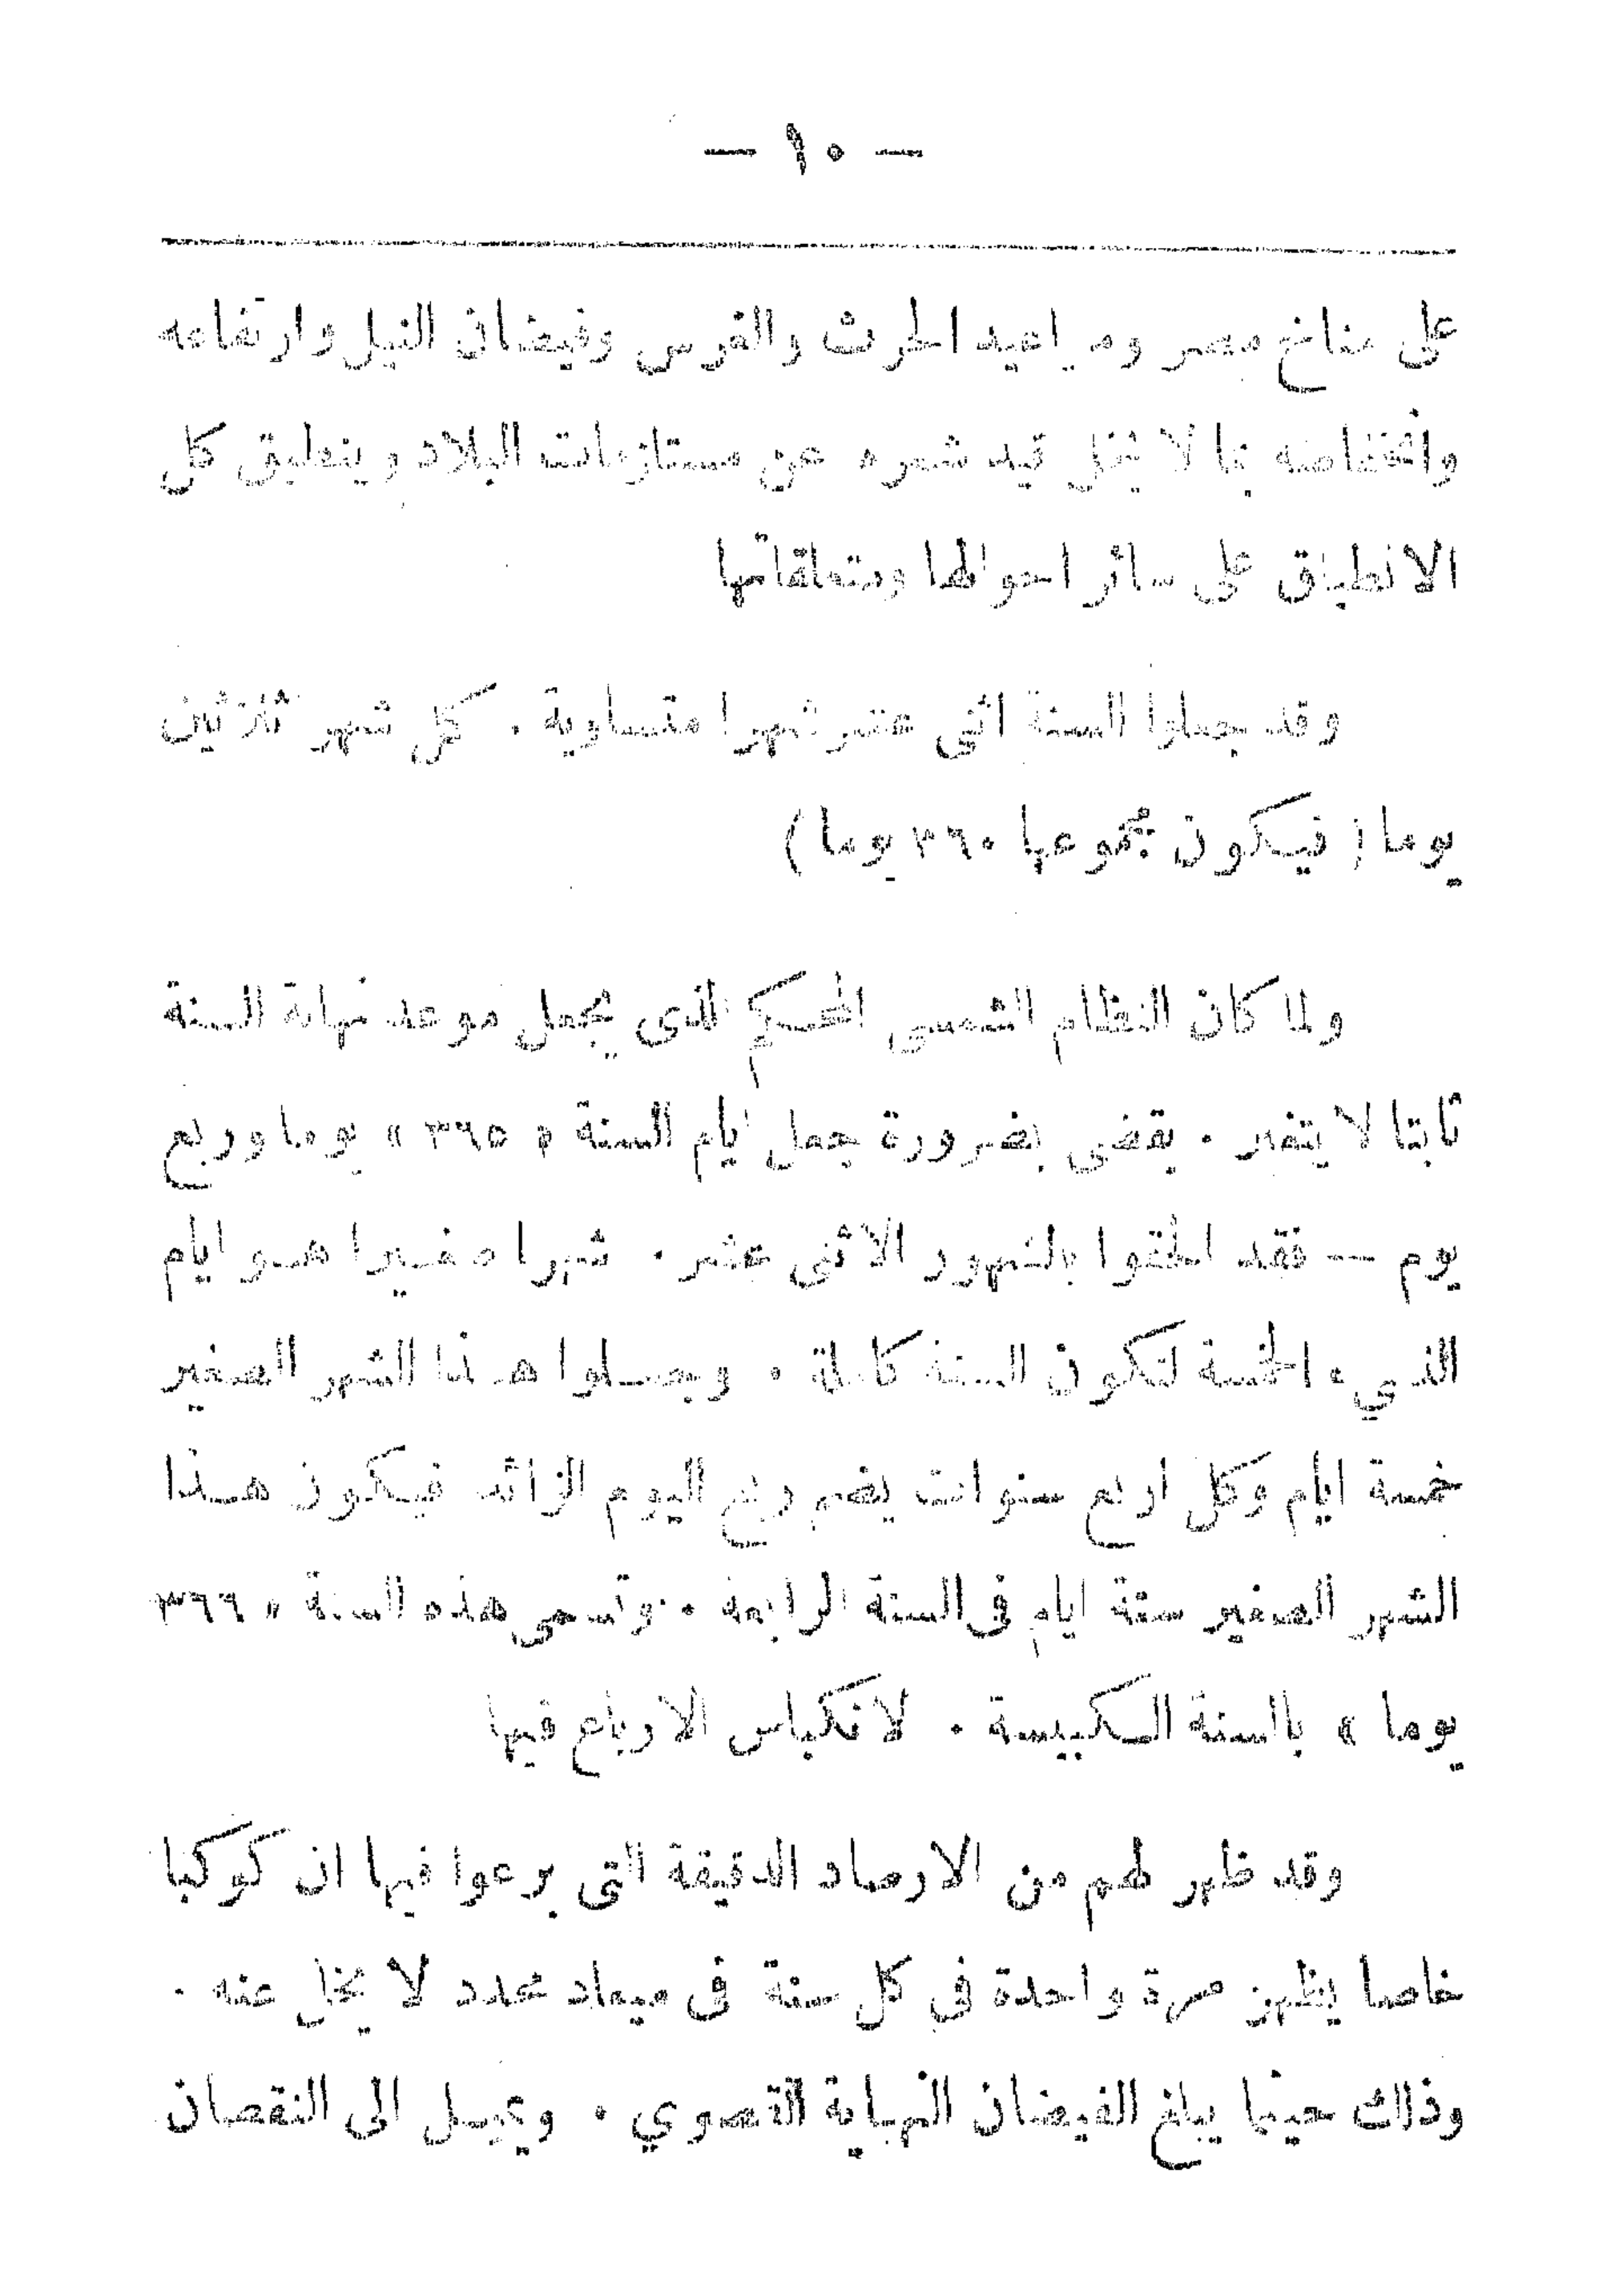 — ١٠ —
على مناخ مصر ومواعيد الحرث والغرس وفيضان النيل وارتفاعه
وانخفاضه بما لا يخل قيد شعره عن مستلزمات البلاد وينطبق كل
الانطباق على سائر احوالها ومتعلقاتها
وقد جعلوا السنة اثنى عشر شهرا متساوية . كل شهر ثلاثين
يوما ( فيكون مجموعها ٣٦٠ يوما )
ولما كان النظام الشمسى المحكم الذى يجعل موعد نهاية السنة
ثابتا لا يتغير . يقضى بضرورة جعل ايام السنة « ٣٦٥ » يوما وربع
يوم — فقد الحقوا بالشهور الاثنى عشر . شهرا صغيرا هو ايام
النسيء الخمسة لتكون السنة كاملة . وجعلوا هذا الشهر الصغير
خمسة ايام وكل اربع سنوات يضم ربع اليوم الزائد فيكون هذا
الشهر الصغير ستة ايام فى السنة الرابعة . وتسمى هذه السنة « ٣٦٦
يوما » بالسنة الكبيسة . لانكباس الارباع فيها
وقد ظهر لهم من الارصاد الدقيقة التى برعوا فيها ان كوكبا
خاصا يظهر مرة واحدة فى كل سنة فى ميعاد محدد لا يخل عنه .
وذلك حينما يبلغ الفيضان النهاية القصوي . ويميل الى النقصان